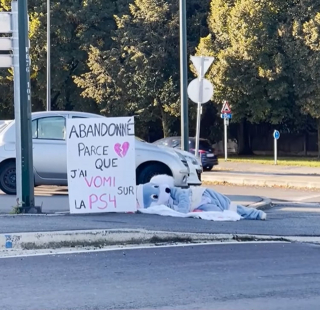 ABANDONNÉ
PARCE
QUE
J'AI VOMI SUR
LA PS4